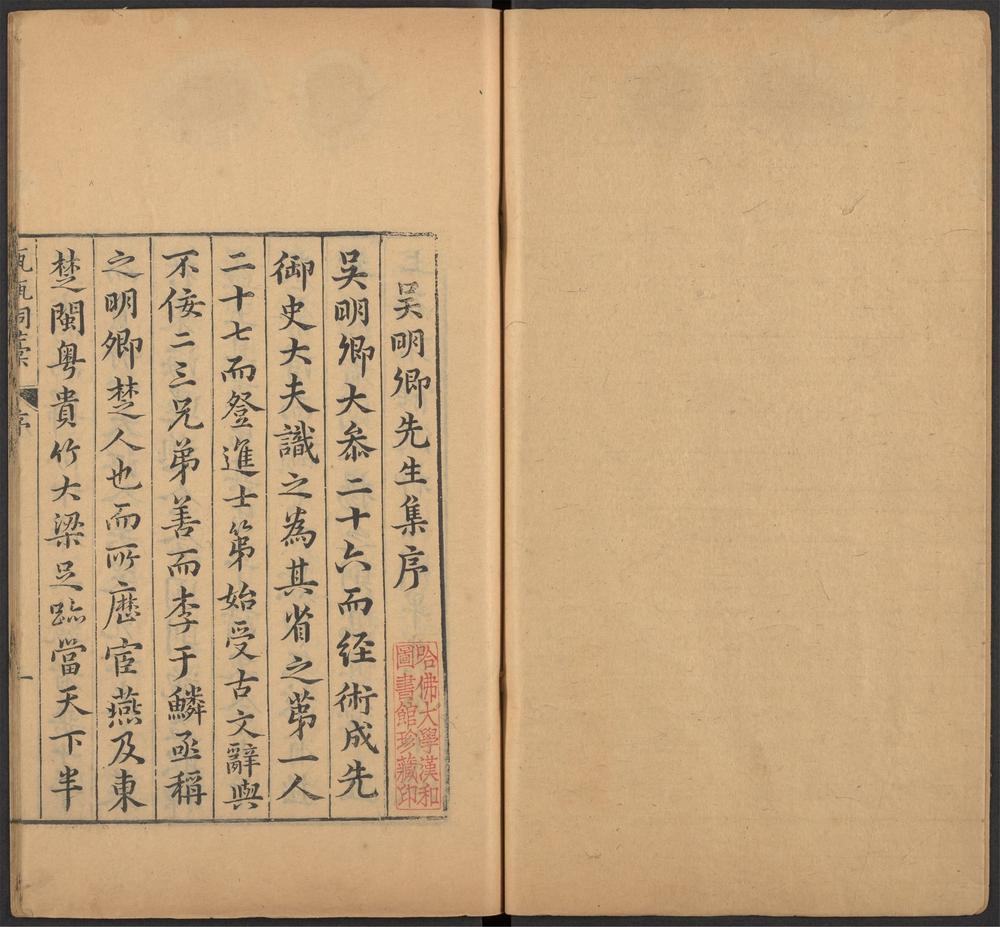 吳明卿先生集序
哈佛大學漢和
圖書館珍藏印
吳明卿大叅二十六而經術成先
御史大夫識之為其省之第一人
二十七而登進士第始受古文辭與
不佞二三兄弟善而李于鱗亟稱
之明卿楚人也而所歷宦燕及東
楚閩粵貴竹大梁足跡當天下半
甔甀洞藁
序
一